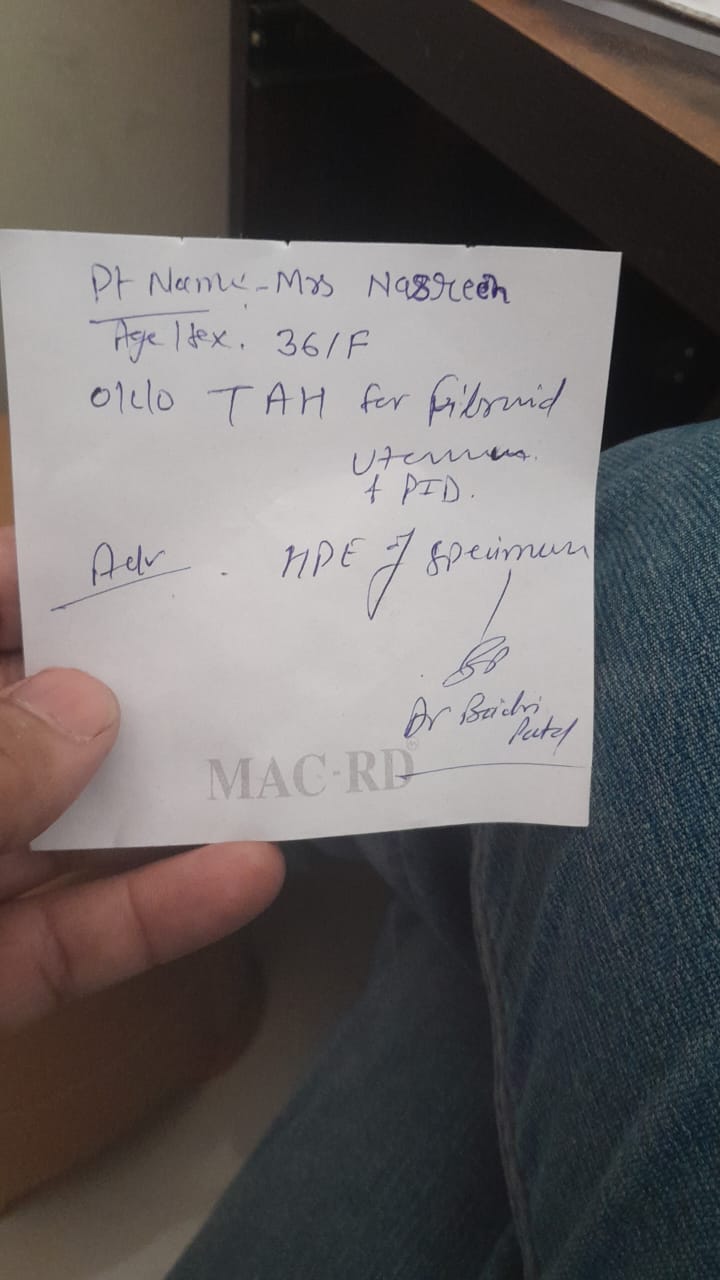 Pt Name - Mrs Nasreen
Age / Sex. 36/F
TAH for fibroid
Uterus
+ PID.
Adv. HPE of specimen
Dr Patel
MAC-RD®